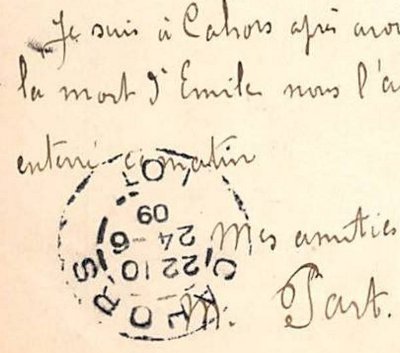 Je suis à Cahors après avoi
la mort d'Emile nous l'a
enterré ce matin
Mes amitiés
M. Part.
CAHORS
22 10
24 -6
09
LOT